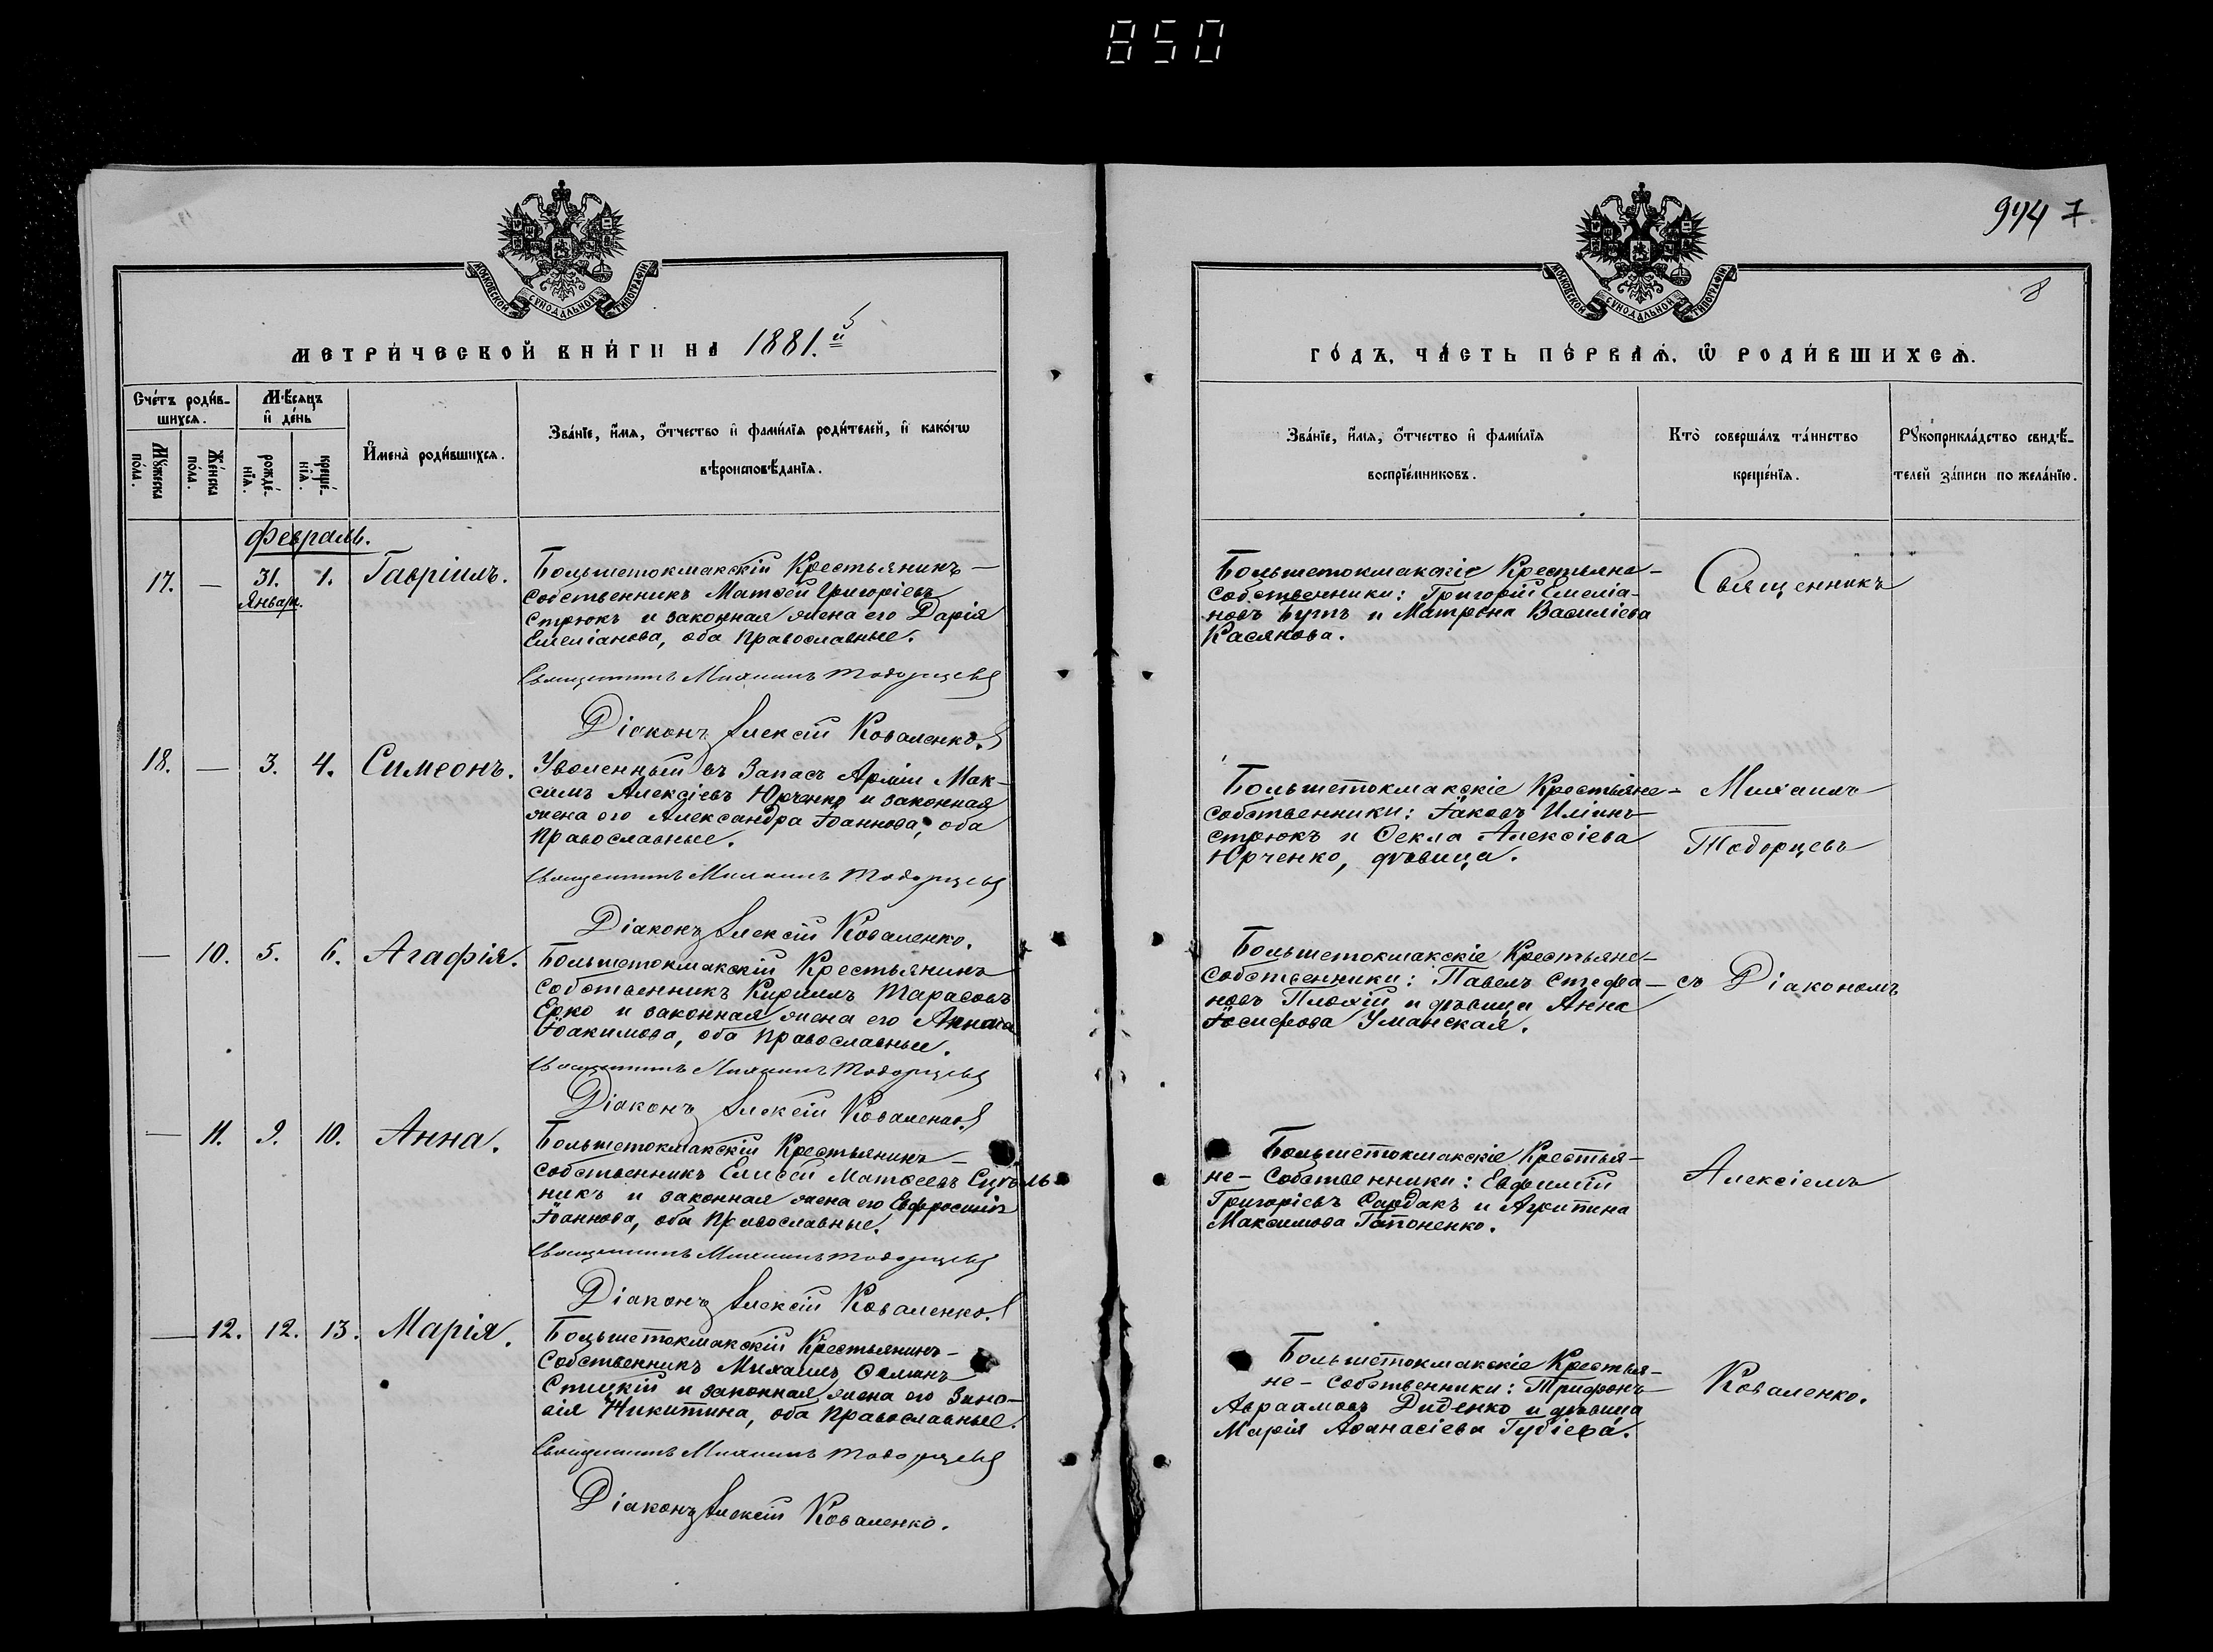 850
МОСКОВСКОЙ СѴНОДАЛЬНОЙ ТИПОГРАФІИ
МЕТРИ́ЧЕСКОЙ КНИ́ГИ НА 1881.й
Сче́тъ роди́в-
шихсѧ.
Мѣ́сѧцъ
и҆ де́нь
Мꙋ́жеска
по́ла.
Же́нска
по́ла.
рожде́-
нїѧ.
креще́-
нїѧ.
И҆мена̀ роди́вшихсѧ.
Зва́нїе, и҆́мѧ, ѻ҆́тчество и҆ фами́лїѧ роди́телей, и҆ како́гѡ
вѣроисповѣ́данїѧ.
Февраль.
17. — 31. 1. Гавріилъ.
Январ.
Большетокмакскій Крестьянинъ—
собственникъ Матѳей Григоріевъ
Стрюкъ и законная жена его Дарія
Емеліанова, оба православные.
Священникъ Михаилъ Тодорцевъ
Діаконъ Алексій Коваленко.
18. — 3. 4. Симеонъ.
Уволенный въ Запасъ Арміи Мак-
симъ Алексіевъ Юрченко и законная
жена его Александра Іоаннова, оба
православные.
Священникъ Михаилъ Тодорцевъ
Діаконъ Алексій Коваленко.
— 10. 5. 6. Агафія.
Большетокмакскій Крестьянинъ
собственникъ Кириллъ Тарасовъ
Ерко и законная жена его Анна
Іоакимова, оба православные.
Священникъ Михаилъ Тодорцевъ
Діаконъ Алексій Коваленко.
— 11. 9. 10. Анна.
Большетокмакскій Крестьянинъ—
собственникъ Елисей Матѳеевъ
никъ и законная жена его Евфросинія
Іоаннова, оба православные.
Священникъ Михаилъ Тодорцевъ
Діаконъ Алексій Коваленко.
— 12. 12. 13. Марія.
Большетокмакскій Крестьянинъ—
собственникъ Михаилъ
и законная жена его Зино-
вія Никитина, оба православные.
Священникъ Михаилъ Тодорцевъ
Діаконъ Алексій Коваленко.
944 7.
8
МОСКОВСКОЙ СѴНОДАЛЬНОЙ ТИПОГРАФІИ
ГО́ДЪ, ЧА́СТЬ ПЕ́РВАѦ, Ѡ҆ РОДИ́ВШИХСѦ.
Зва́нїе, и҆́мѧ, ѻ҆́тчество и҆ фами́лїѧ
воспрїе́мниковъ.
Кто̀ соверша́лъ та́инство
креще́нїѧ.
Рꙋкоприкла́дство свидѣ́-
телей за́писи по жела́нїю.
Большетокмакскіе Крестьяне—
собственники: Григорій Емеліа-
новъ Бутъ и Матрона Василіева
Касянова.
Священникъ
Большетокмакскіе Крестьяне—
собственники: Іаковъ Илiинъ
Стрюкъ и Ѳекла Алексіева
Юрченко, дѣвица.
Михаилъ
Тодорцевъ
Большетокмакскіе Крестьяне—
собственники: Павелъ Стефа-
новъ Плохій и дѣвица Анна
Іосифова Уманская.
съ Діакономъ
Большетокмакскіе Крестья-
не—собственники: Евфимій
Григоріевъ Сардакъ и Акитина
Максимова Гапоненко.
Алексіемъ
Большетокмакскіе Крестья-
не—собственники: Трифонъ
Авраамовъ Диденко и дѣвица
Марія Аѳанасіева Губіева.
Коваленко.